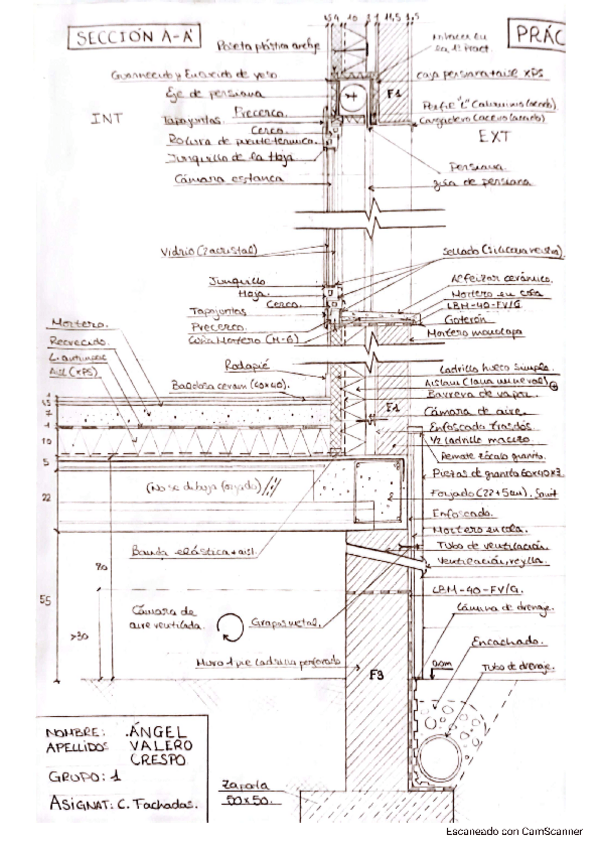 SECCIÓN A-A'
PRÁC
1,5 4 10 3 1 11,5 1,5
Guarnecido y Enlucido de yeso
caja persiana + aisl XPS
Eje de persiana
F1
INT
Precerco.
Tapajuntas
Cerco.
Rotura de puente térmico.
Perfil "L"
Cargadero
EXT
Junquillo de la Hoja
Cámara estanca
Persiana
guía de persiana
Vidrio (2 cristal)
Sellado (silicona neutra).
Junquillo
Hoja.
Cerco.
Tapajuntas
Precerco.
Cuña Mortero (M-6)
Alfeizar cerámico.
Mortero en cola
LBM-40-FV/G
Goterón
Mortero monocapa
Mortero.
Recrecido.
L. antiimpac
Aisl (XPS)
Rodapié
Baldosa ceram (40x40).
Ladrillo hueco simple.
Aislam (lana mineral)
Barrera de vapor.
F1
Cámara de aire.
Enfoscado trasdós.
1/2 ladrillo macizo
Remate zócalo granito.
Piezas de granito 60x40x3
1
1,5
7
1
10
5
22
(No se dibuja (forjado)
Forjado (22+5cm).
Enfoscado.
Mortero en cola.
Banda elástica + aisl.
Tubo de ventilación
Ventilación, rejilla.
LBM-40-FV/G.
Lámina de drenaje.
55
>30
Cámara de
aire ventilada.
Grapas metal.
Encachado.
Muro 1 pie ladrillo perforado
F3
0.0m
Tubo de drenaje.
NOMBRE: ÁNGEL
APELLIDOS VALERO
CRESPO
GRUPO: 1
ASIGNAT: C. Fachadas.
Zapata
50x50.
Escaneado con CamScanner